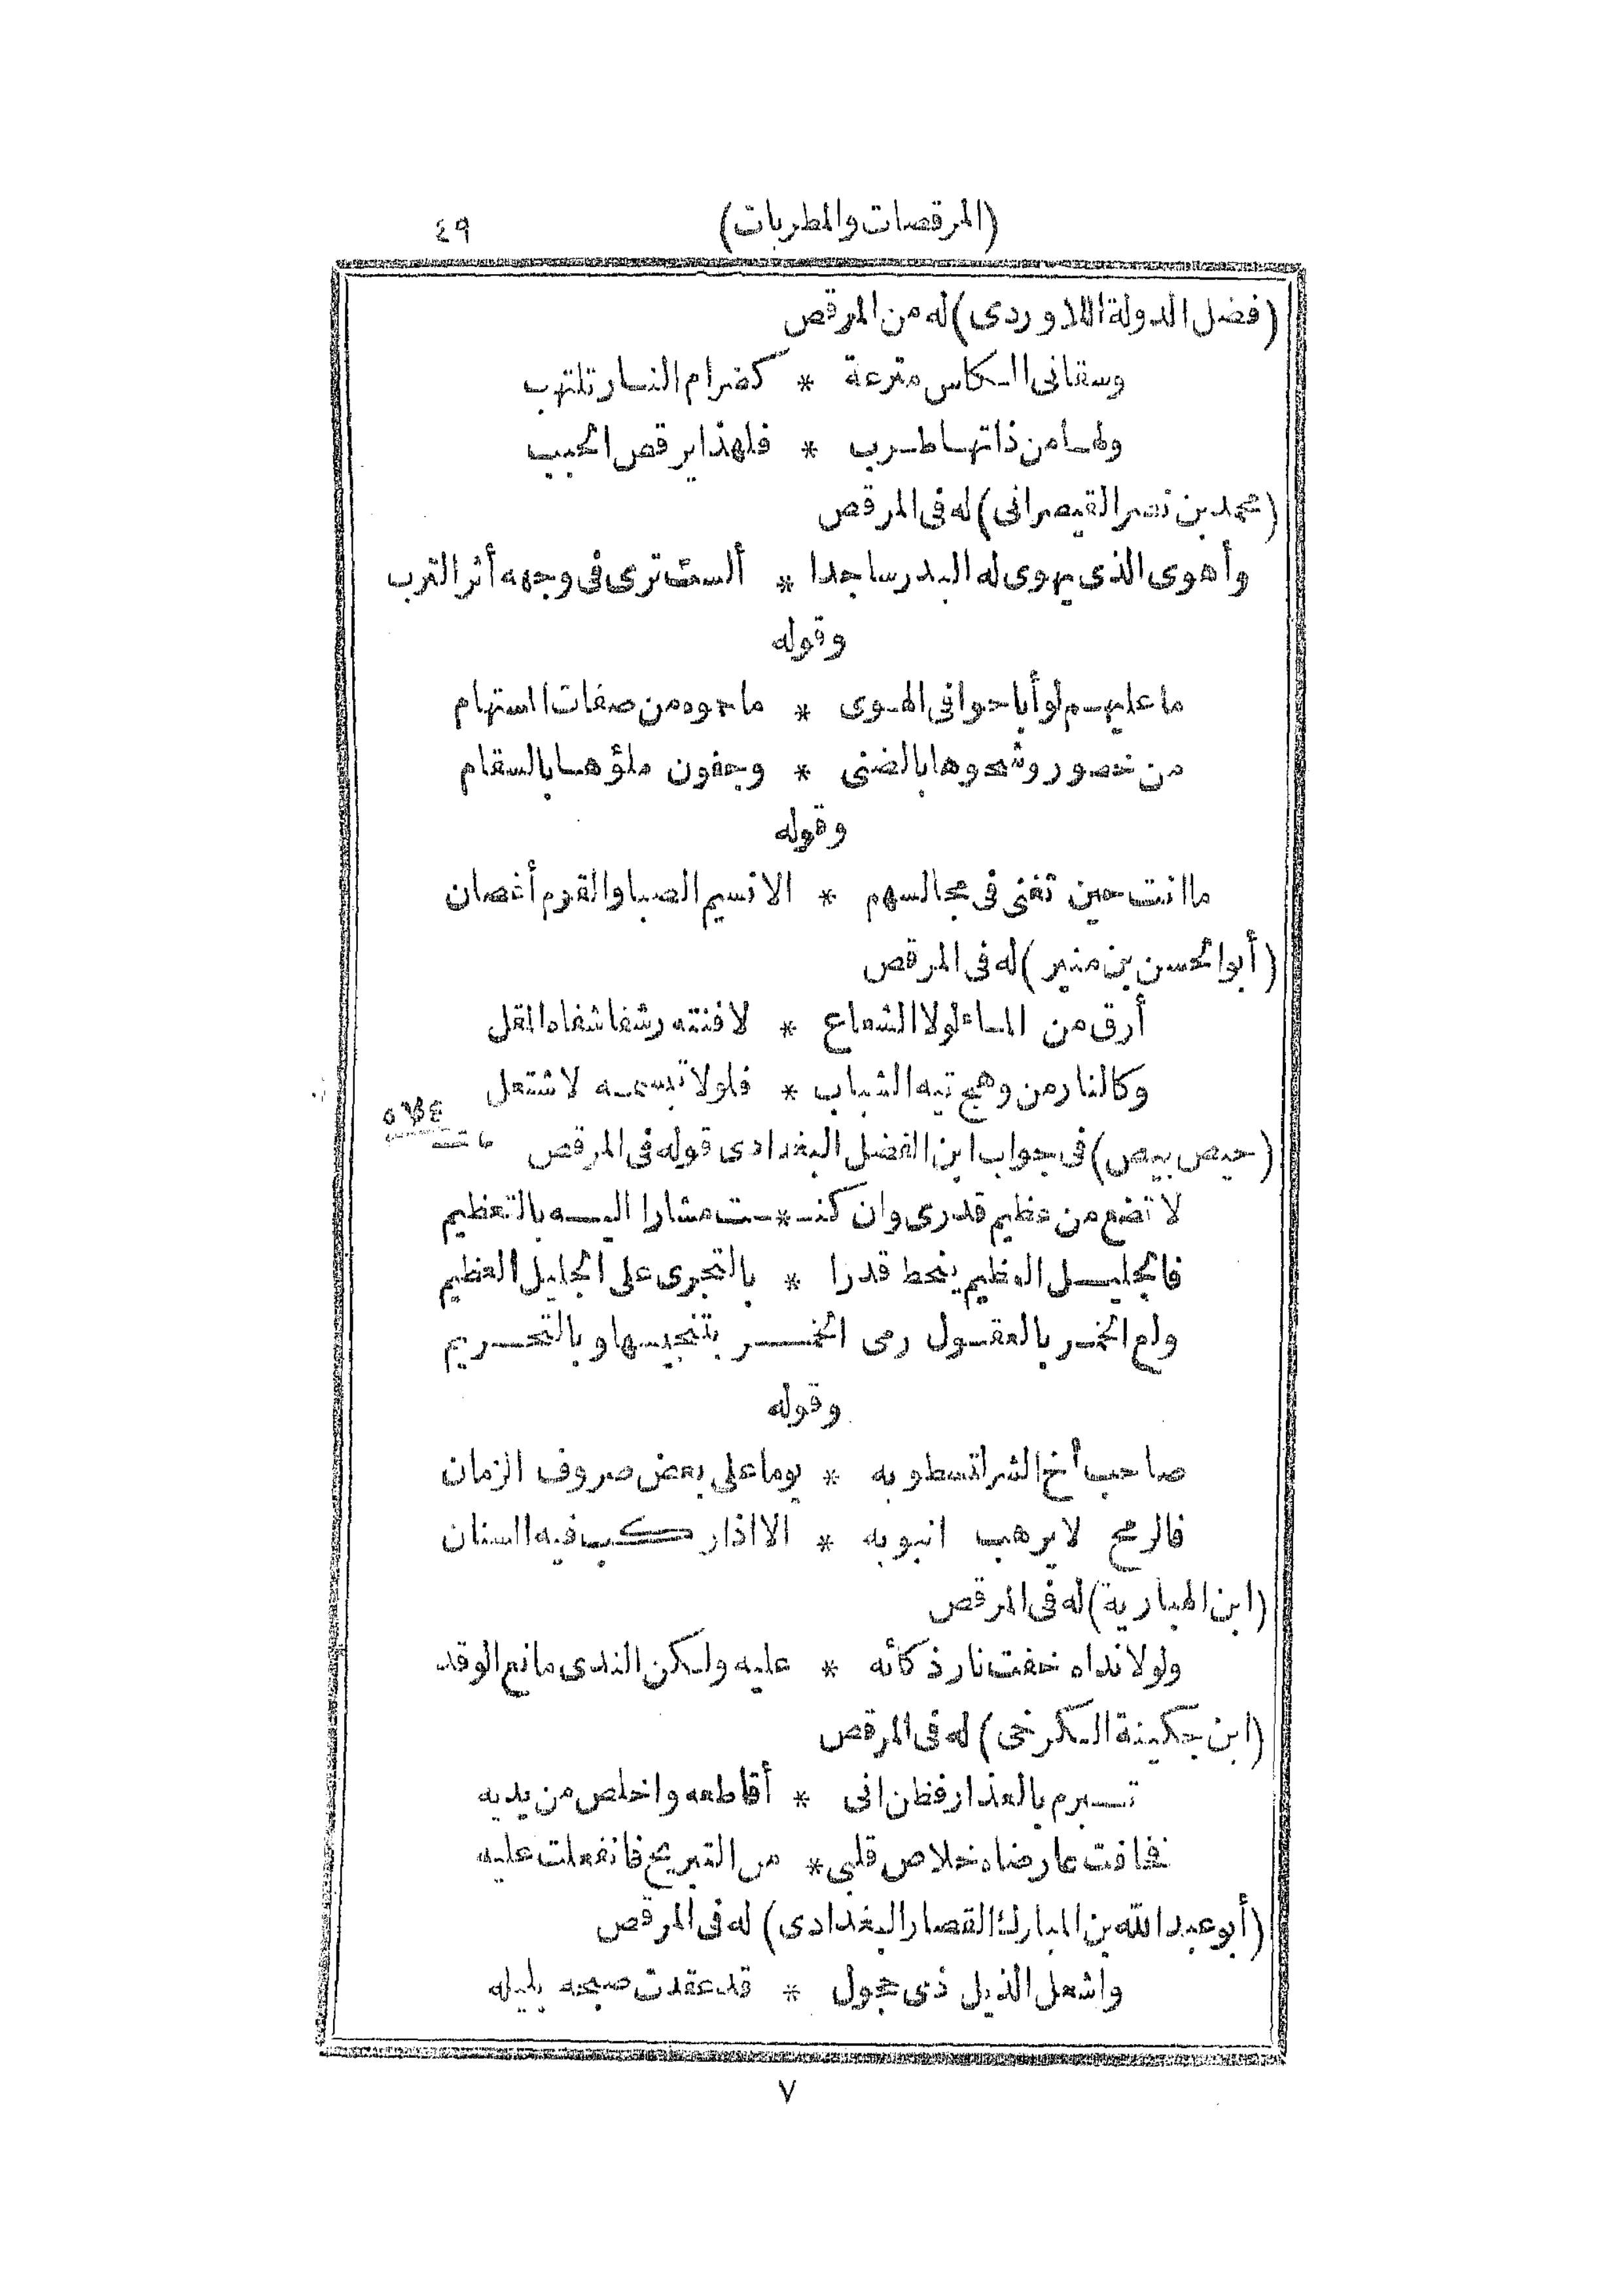 (المرقصات والمطربات) ٤٩
(فضل الدولة اللاوردى) له من المرقص
وسقانى الكاس مترعة * كضرام النار تلتهب
ولها من ذاتها طرب * فلهذا يرقص الحبب
(محمد بن نصر القيصرانى) له فى المرقص
وأهوى الذى يهوى له البدر ساجدا * ألست ترى فى وجهه أثر الترب
وقوله
ما عليهم لو أباحوا فى الهوى * ما حووه من صفات المستهام
من خصور وشحوها بالضنى * وجفون ملؤها بالسقام
وقوله
ما انت حين تغنى فى مجالسهم * الا نسيم الصبا والقوم أغصان
(أبو الحسن بن منير) له فى المرقص
أرق من الماء لولا الشعاع * لافنته رشفا شفاه المقل
وكالنار من وهج تيه الشباب * فلولا تبسمه لاشتعل
(حيص بيص) فى جواب ابن الفضل البغدادى قوله فى المرقص مات ٥٧٤
لا تضع من عظيم قدرى وان كنـ * ـت مشارا اليه بالتعظيم
فالجليل العظيم ينحط قدرا * بالتجرى على الجليل العظيم
ولع الخمر بالعقول رمى الخمر بتنجيسها وبالتحريم
وقوله
صاحب أخ الشر اتسطو به * يوما على بعض صروف الزمان
فالرمح لا يرهب انبوبه * الا اذا ركب فيه السنان
(ابن الهبارية) له فى المرقص
ولولا نداه خفت نار ذكائه * عليه ولكن الندى مانع الوقد
(ابن جكينة الكرخى) له فى المرقص
تبرم بالعذار فظن انى * أقاطعه واخلص من يديه
فخافت عارضاه خلاص قلبى * من التبريح فانفعلت عليه
(أبو عبد الله بن المبارك القصار البغدادى) له فى المرقص
واشعل الذيل ذى حجول * قد عقدت صبحه بليله
٧